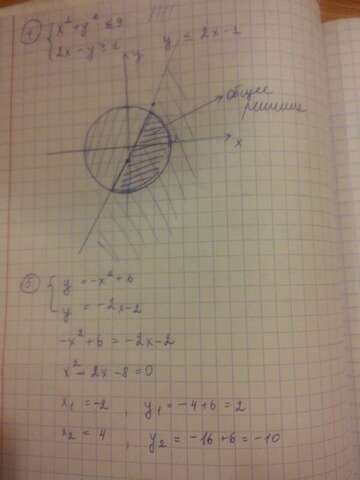 ④ { x² + y² ≤ 9
2x - y ≥ 1
y ≤ 2x - 1
y
общее
решение
x
⑤ { y = -x² + 6
y = -2x - 2
-x² + 6 = -2x - 2
x² - 2x - 8 = 0
x₁ = -2 , y₁ = -4 + 6 = 2
x₂ = 4 , y₂ = -16 + 6 = -10